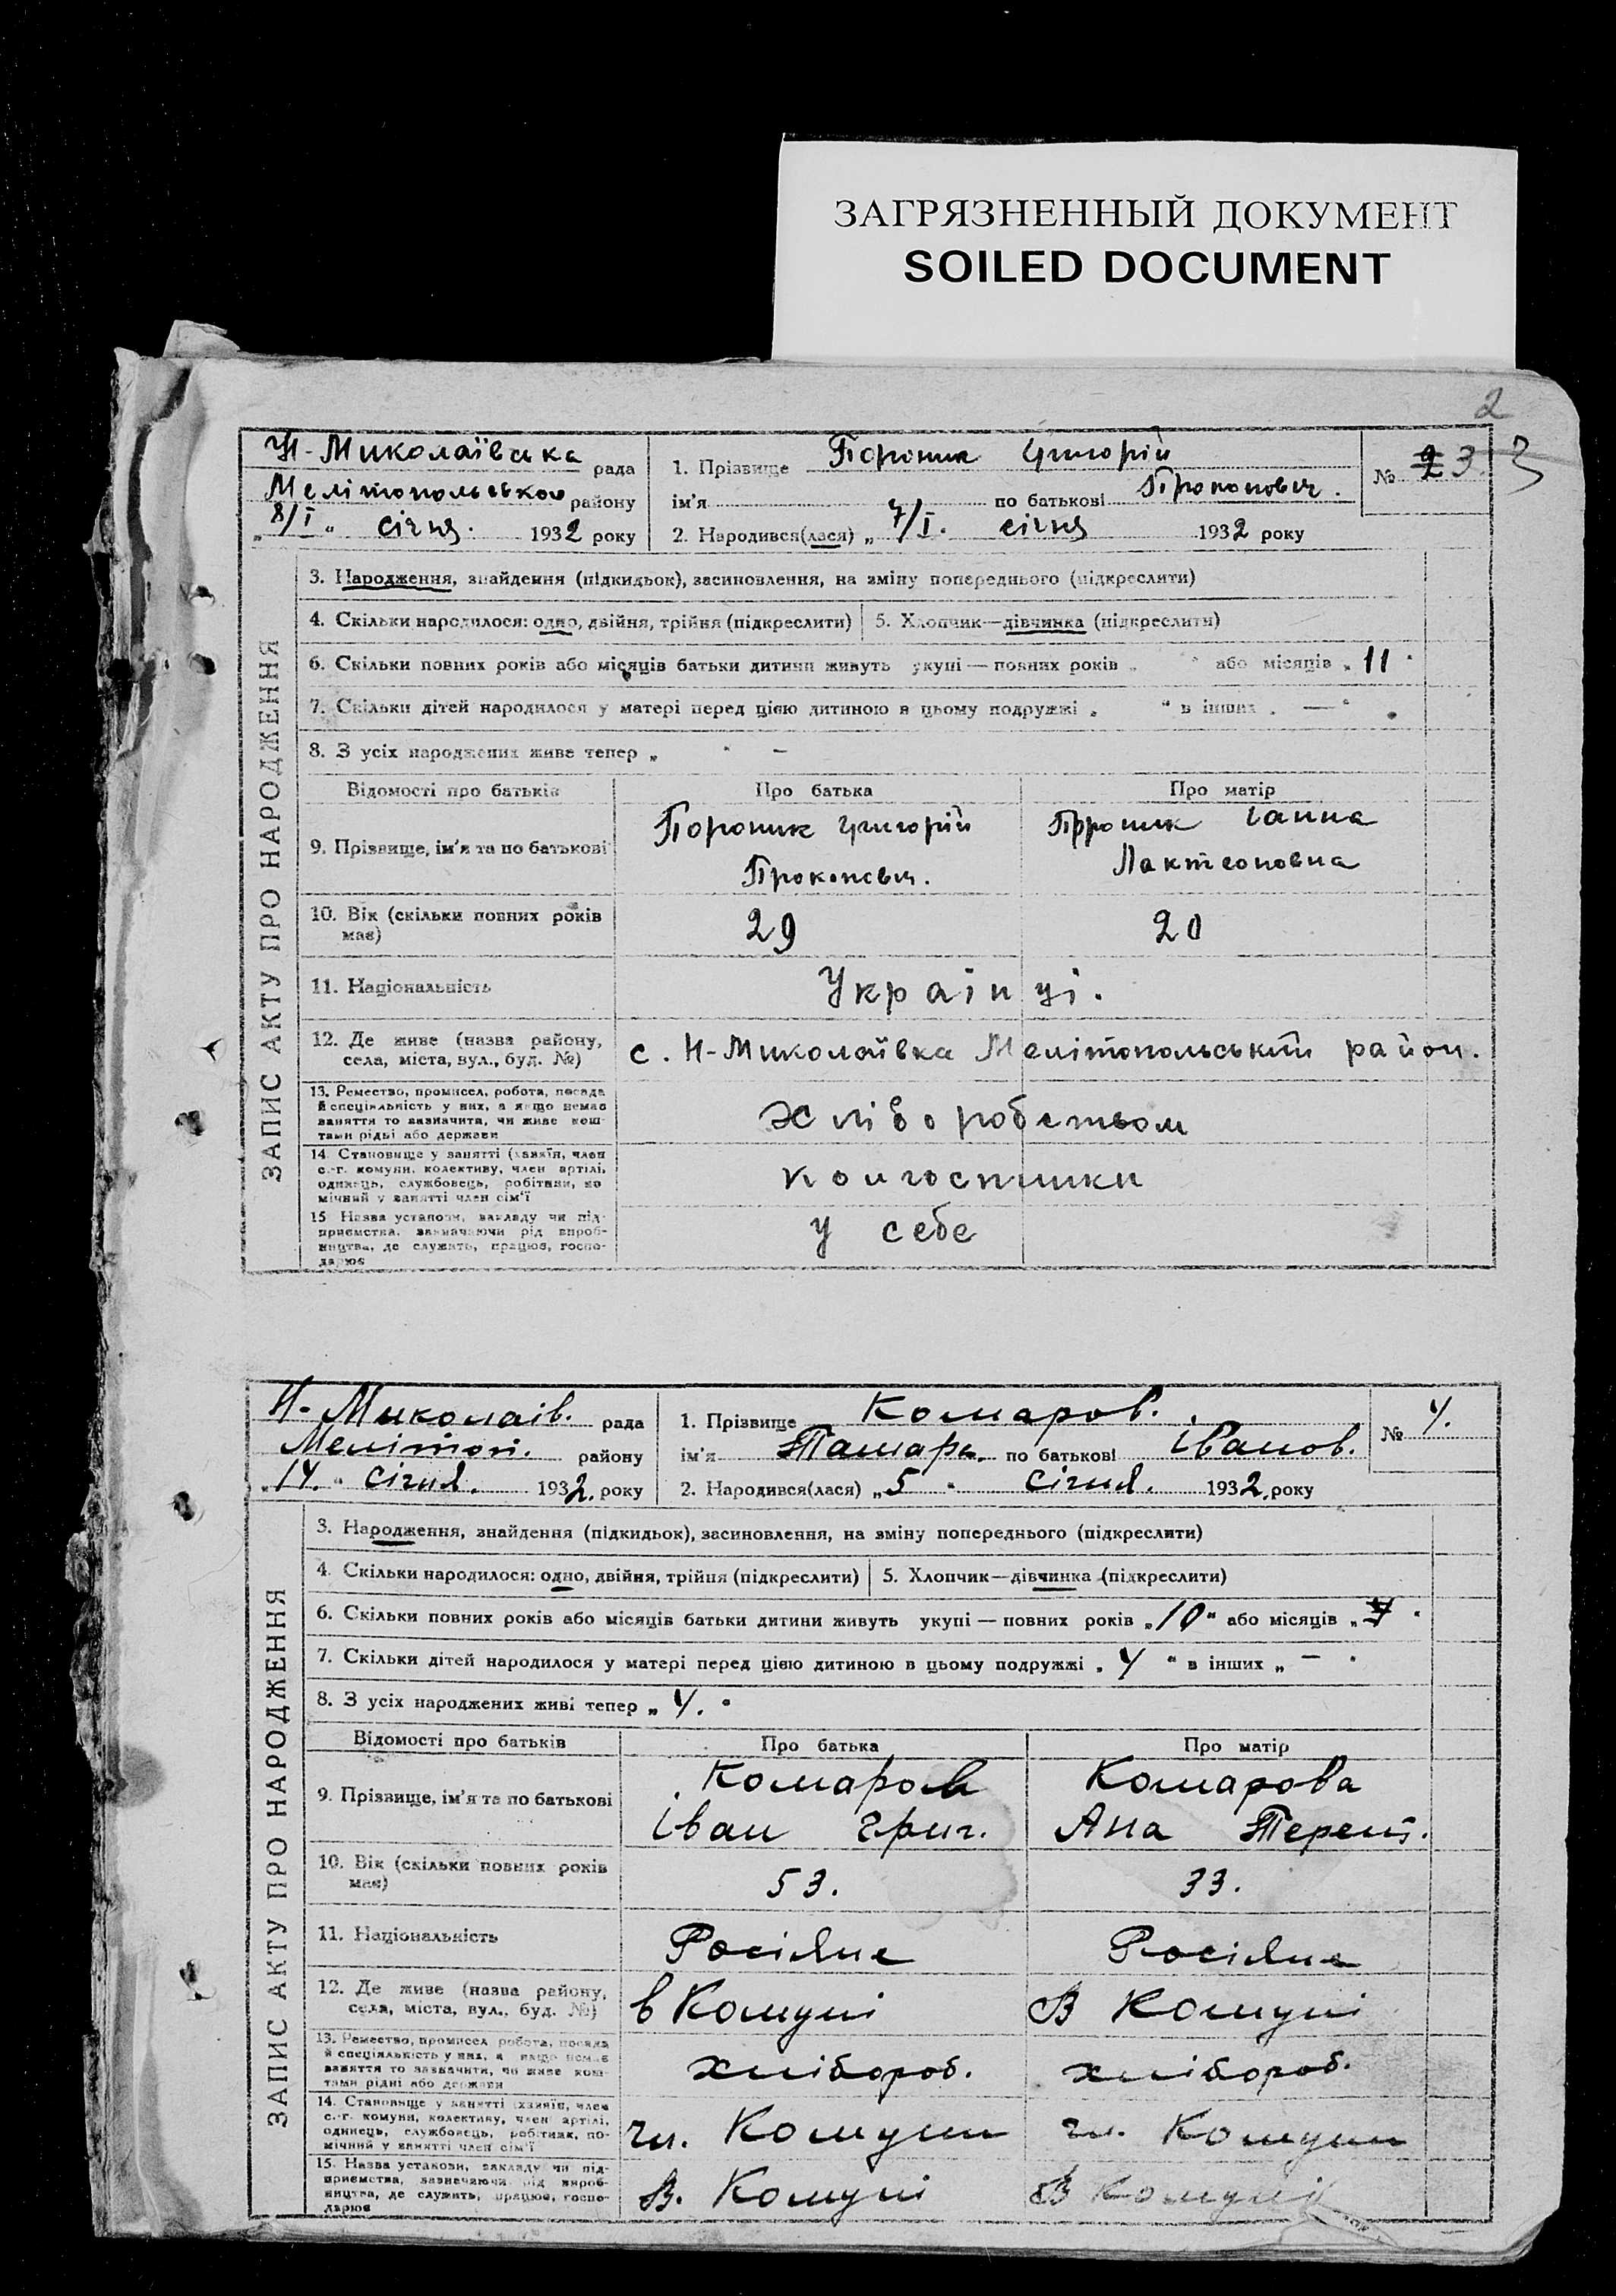 ЗАГРЯЗНЕННЫЙ ДОКУМЕНТ
SOILED DOCUMENT
2
Н-Миколаївська рада
Мелітопольського району
„8/I“ січня. 1932 року
1. Прізвище Пороник Григорій
ім'я по батькові Прокопович.
2. Народився(лася) „7/I. січня 1932 року
№ 3.
3
ЗАПИС АКТУ ПРО НАРОДЖЕННЯ
3. Народження, знайдення (підкидьок), засиновлення, на зміну попереднього (підкреслити)
4. Скільки народилося: одно, двійня, трійня (підкреслити) 5. Хлопчик—дівчинка (підкреслити)
6. Скільки повних років або місяців батьки дитини живуть укупі — повних років „ “ або місяців „11“
7. Скільки дітей народилося у матері перед цією дитиною в цьому подружжі „ “ в інших „ — “
8. З усіх народжених живе тепер „ “ –
Відомості про батьків Про батька Про матір
9. Прізвище, ім'я та по батькові
Пороник Григорій
Прокопович.
Пороник Ганна
Лактеоновна
10. Вік (скільки повних років має) 29 20
11. Національність Українці.
12. Де живе (назва району, села, міста, вул., буд. №)
с. Н-Миколаївка Мелітопольський район.
13. Ремество, промисел, робота, посада
й спеціяльність у них, а якщо немає
заняття то зазначити, чи живе кош-
тами рідні або держави
хліборобством
14. Становище у занятті (хазяїн, член
с.-г. комуни, колективу, член артілі,
одинець, службовець, робітник, по-
мічний у занятті член сім'ї
колгоспники
15. Назва установи, закладу чи під-
приємства, зазначаючи рід вироб-
ництва, де служить, працює, госпо-
дарює
у себе
Н-Миколаів. рада
Меліток. району
„14.“ січня. 1932. року
1. Прізвище Комаров.
ім'я Тамара по батькові Іванов.
2. Народився(лася) „5 “ січня. 1932. року
№ 4.
ЗАПИС АКТУ ПРО НАРОДЖЕННЯ
3. Народження, знайдення (підкидьок), засиновлення, на зміну попереднього (підкреслити)
4. Скільки народилося: одно, двійня, трійня (підкреслити) 5. Хлопчик—дівчинка (підкреслити)
6. Скільки повних років або місяців батьки дитини живуть укупі — повних років „10“ або місяців „ “
7. Скільки дітей народилося у матері перед цією дитиною в цьому подружжі „ 4 “ в інших „ – “
8. З усіх народжених живі тепер „ 4. “
Відомості про батьків Про батька Про матір
9. Прізвище, ім'я та по батькові
Комаров
Іван Григ.
Комарова
Ана Терент.
10. Вік (скільки повних років має) 53. 33.
11. Національність Росіяне Росіяне
12. Де живе (назва району, села, міста, вул., буд. №)
в Комуні В Комуні
13. Ремество, промисел, робота, посада
й спеціяльність у них, а якщо немає
заняття то зазначити, чи живе кош-
тами рідні або держави
хлібороб. хлібороб.
14. Становище у занятті (хазяїн, член
с.-г. комуни, колективу, член артілі,
одинець, службовець, робітник, по-
мічний у занятті член сім'ї
чл. Комуни чл. Комуни
15. Назва установи, закладу чи під-
приємства, зазначаючи рід вироб-
ництва, де служить, працює, госпо-
дарює
В. Комуні В Комуні